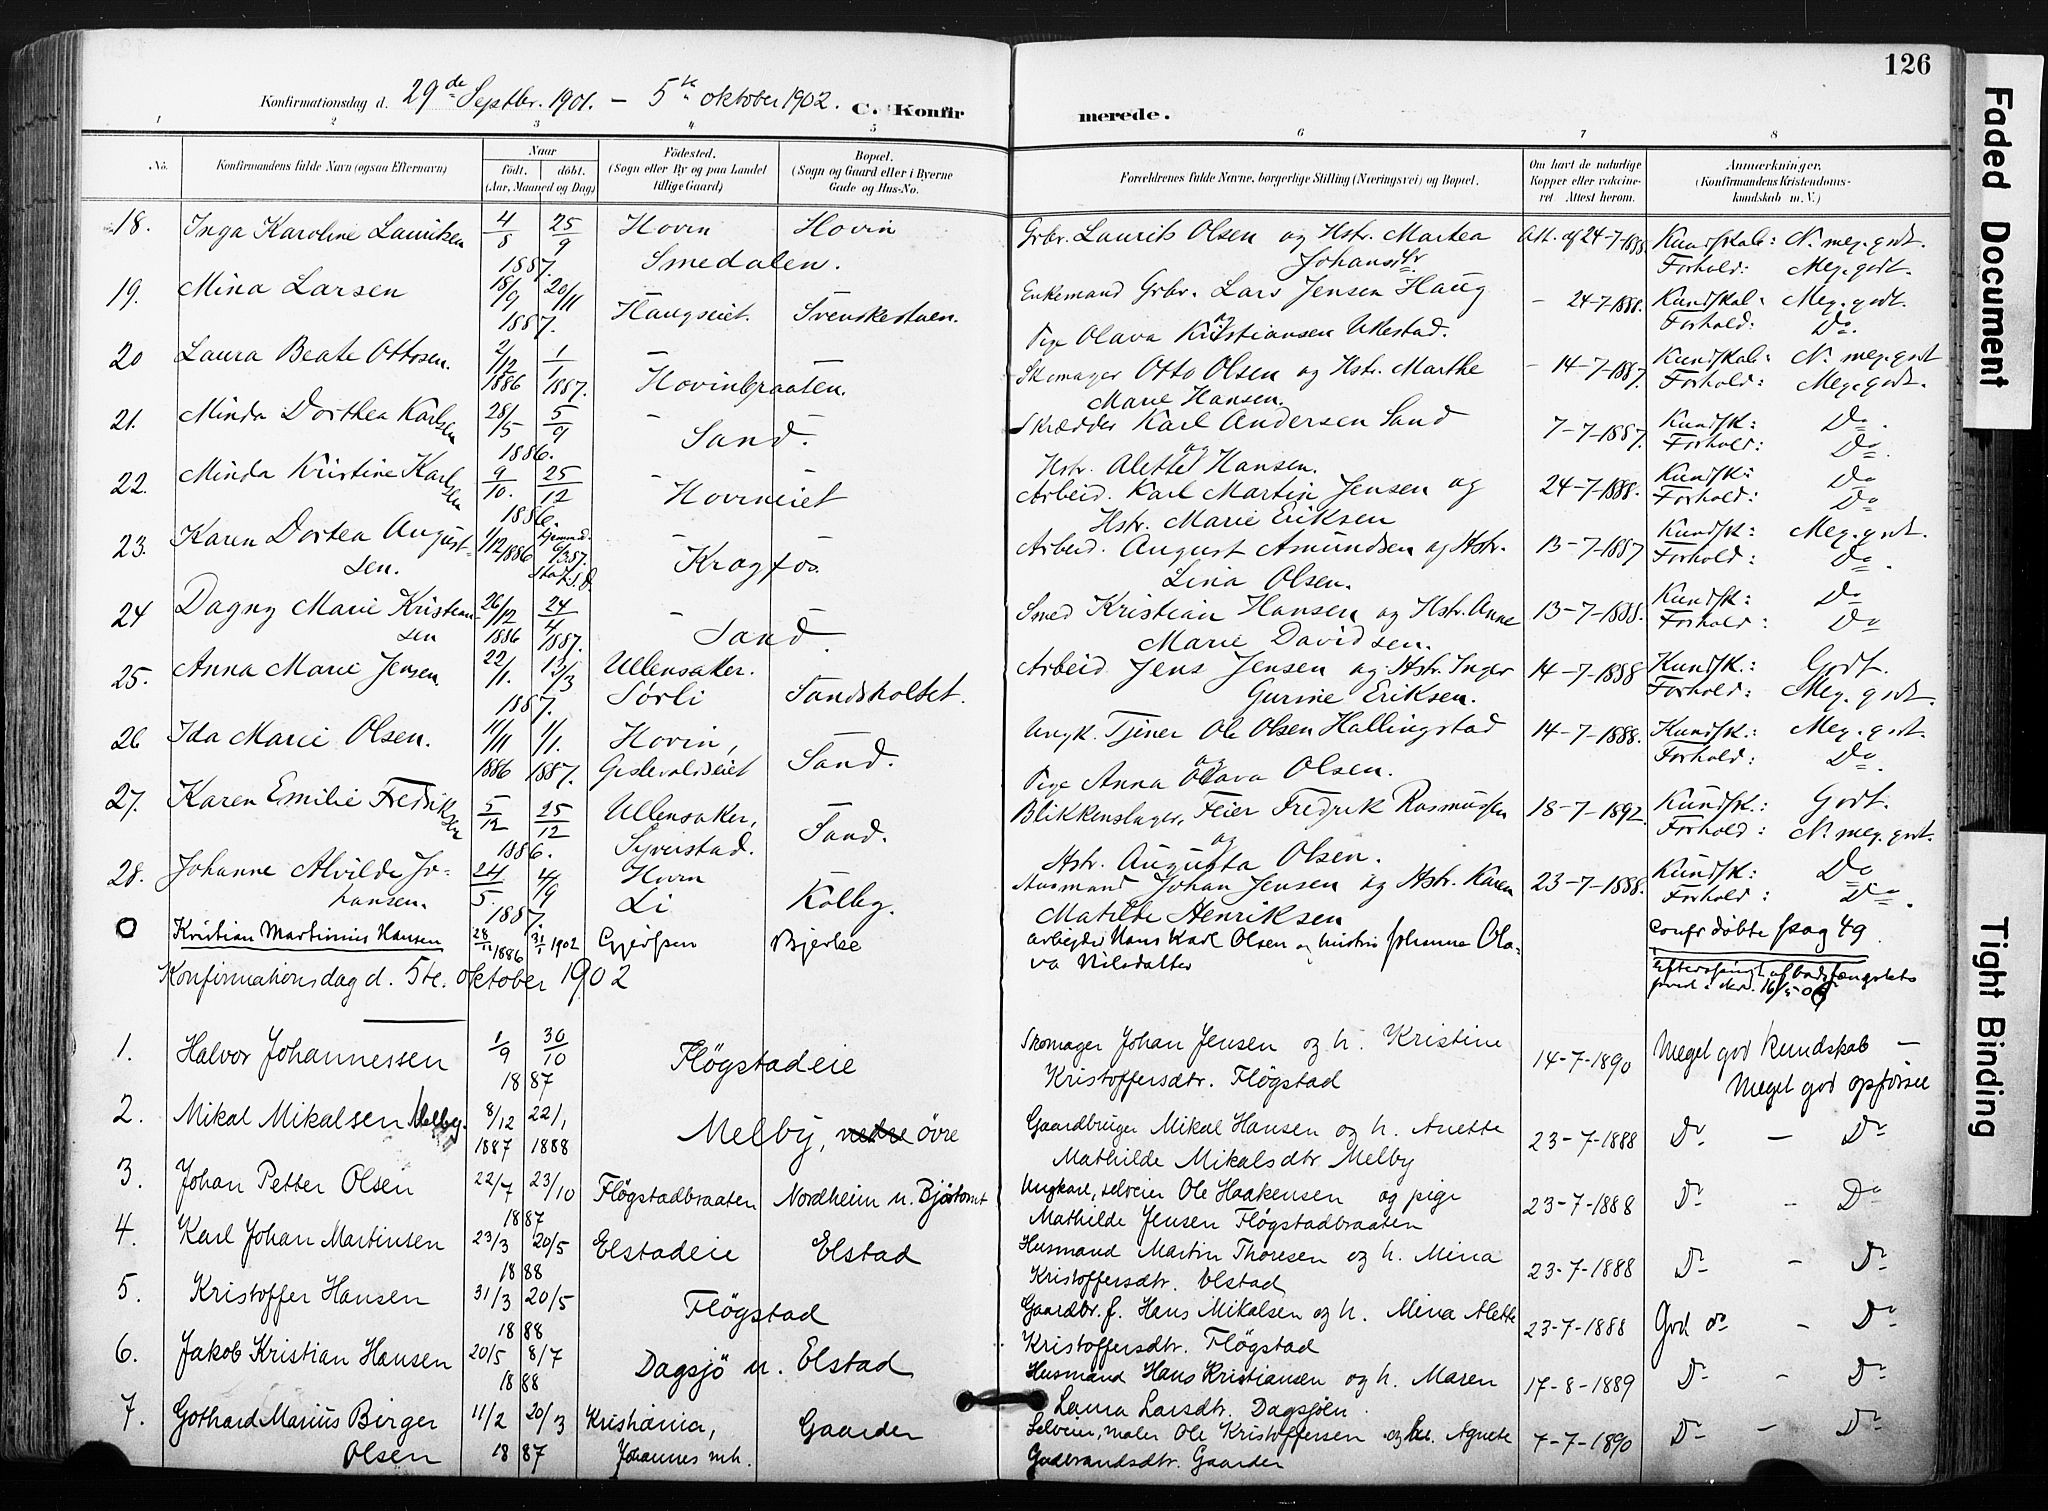 126
Konfirmationsdag d. 29de Septbr. 1901. – 5te oktober 1902. C. Konfirmerede.
1 2 3 4 5 6 7 8
No. Konfirmandens fulde Navn (ogsaa Efternavn) Naar født. døbt. (Aar, Maaned og Dag) Fødested. (Sogn eller By og paa Landet tillige Gaard) Bopæl. (Sogn og Gaard eller i Byerne Gade og Hus-No. Forældrenes fulde Navne, borgerlige Stilling (Næringsvei) og Bopæl. Om havt de naturlige Kopper eller vakcineret. Attest herom. Anmærkninger. (Konfirmandens Kristendomskundskab m. V.)
18. Inga Karoline Lauritsen 4/8 25/9 1887. Hovin Smedalen. Hovin Grbr. Laurits Olsen og Hstr. Martea Johansdtr Att. af 24-7-1888. Kundskab: N. meg. godt. Forhold: Meg. godt.
19. Mina Larsen 18/9 20/11 1887. – Haugseiet. – Svenskestuen. Enkemand Grbr. Lars Jensen Haug og Pige Olava Kristiansen Ullestad. – 24-7-1888. Kundskab: Meg. godt. Forhold: Do.
20 Laura Beate Ottosen. 2/12 1886 1/1 1887. – Hovinbraaten. – Skomager Otto Olsen og Hstr. Marthe Marie Hansen. – 14-7-1887. Kundskab: N. meg. godt Forhold: Meg. godt.
21. Minda Dorthea Karlsen 28/5 5/9 1886. – Sand. – Skrædder Karl Andersen Sand og Hstr. Alette Hansen. 7-7-1887. Kundsk: Do. Forhold: Do.
22. Minda Kristine Karlsen 9/10. 25/12 1886. – Hovineiet – Arbeid. Karl Martin Jensen og Hstr. Marie Eriksen 24-7-1888. Kundsk: Do Forhold: Do
23. Karen Dortea Augustsen. 1/12 1886 Hjemmed. – Kragfos. – Arbeid. August Asmundsen og Hstr. Lina Olsen. 13-7-1887 Kundsk: Meg. godt. Forhold: Do.
24 Dagny Marie Kristiansen 26/12 1886 24/4 1887. – Sand. – Smed Kristian Hansen og Hstr. Anne Marie Davidsen. 13-7-1888. Kundsk: Do Forhold: Do
25. Anna Marie Jensen. 22/1. 13/3 1887. Ullensaker. Sørli Sandsholtet. Arbeid. Jens Jensen og Hstr. Inger Gurine Eriksen. 14-7-1888 Kundsk.: Godt. Forhold: Meg. godt.
26 Ida Marie Olsen. 11/11 1886 1/1. 1887. Hovin, Gislevoldseiet Sand. Ungk. Tjener Ole Olsen Hallingstad og Pige Anna Olava Olsen. 14-7-1888. Kundsk: Meg. godt. Forhold: Do.
27. Karen Emilie Fredriksen 5/12 25/12 1886. Ullensaker, Syverstad. Sand. Blikkenslager, Feier Fredrik Rasmussen og Hstr. Augusta Olsen. 18-7-1892. Kundsk.: Godt. Forhold: N. meg. godt.
28. Johanne Alvilde Johansen. 24/5. 4/9 1887. Hovin Li Kolby. Husmand Johan Jensen og Hstr. Karen Matilde Henriksen 23-7-1888. Kundsk: Do Forhold: Do.
0 Kristian Martinius Hansen 28/12 1886 31/1 1902 Gjerdsen Bjerke arbejder Hans Karl Olsen og hustru Johanna Olava Nilsdatter Confr døbte pag 49.
Konfirmationsdag d. 5te. oktober 1902
1. Halvor Johannessen 1/9 30/10 1887 Fløgstadeie Skomager Johan Jensen og h. Kristine Kristoffersdtr. Fløgstad 14-7-1890 Meget god kundskab – Meget god opførsel
2. Mikal Mikalsen Melby. 8/12 1887 22/1 1888 Melby, nedre øvre Gaardbruger Mikal Hansen og h. Anette Mathilde Mikalsdtr Melby 23-7-1888 Do – Do
3. Johan Petter Olsen 22/7 23/10 1887 Fløgstadbraaten Nordheim u. Bjøstomt Ungkarl, selveier Ole Haakensen og pige Mathilde Jensen Fløgstadbraaten 23-7-1888 Do – Do
4. Karl Johan Martinsen 23/3 20/5 1888 Elstadeie Elstad Husmand Martin Thoresen og h. Mina Kristoffersdtr. Elstad 23-7-1888 Do – Do
5. Kristoffer Hansen 31/3 20/5 1888 Fløgstad Gaardbr. f. Hans Mikalsen og h. Mina Alette Kristoffersdtr. Fløgstad 23-7-1888 God do – Do
6. Jakob Kristian Hansen 20/5 8/7 1888 Dagsjö u. Elstad Husmand Hans Kristiansen og h. Maren Laura Larsdtr. Dagsjøen. 17-8-1889 Do – Do
7. Gothard Marius Birger Olsen 11/2 20/3 1887 Kristiania, Johannes mh. Gaarder Selveier, maler Ole Kristoffersen og hu. Agnete Gudbrandsdtr. Gaarder 7-7-1890 Do – Do
Faded Document
Tight Binding